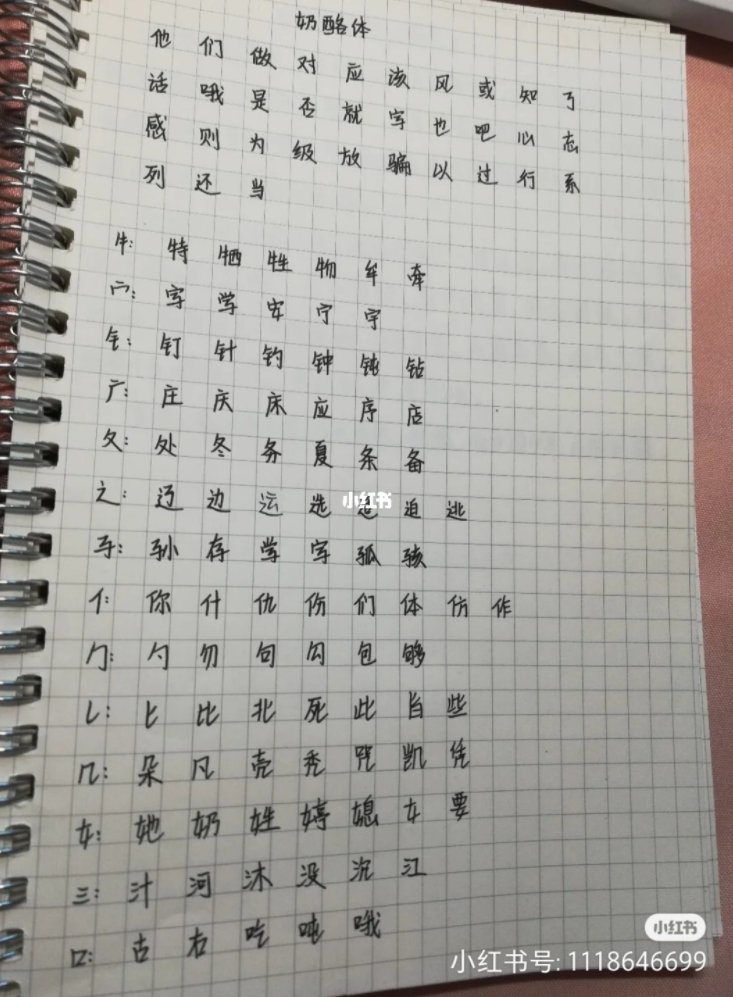 奶酪体
他们做对应该风或知了
话哦是否就字也吧心志
感则为级放骗以过行系
列还当
牜: 特牺牲物牟牵
宀: 字学安宁宇
钅: 钉针钓钟钝钻
广: 庄庆床应序店
夂: 处冬务夏条备
辶: 辽边运选追迫逃
小红书
子: 孙存学字孤孩
亻: 你什仇伤们体仿作
勹: 勺勿句勾包够
乚: 匕比北死此旨些
几: 朵凡壳秃咒凯凭
女: 她奶姓婷媳女要
三: 汁河沐没沉江
口: 古右吃吨哦
小红书
小红书号: 1118646699